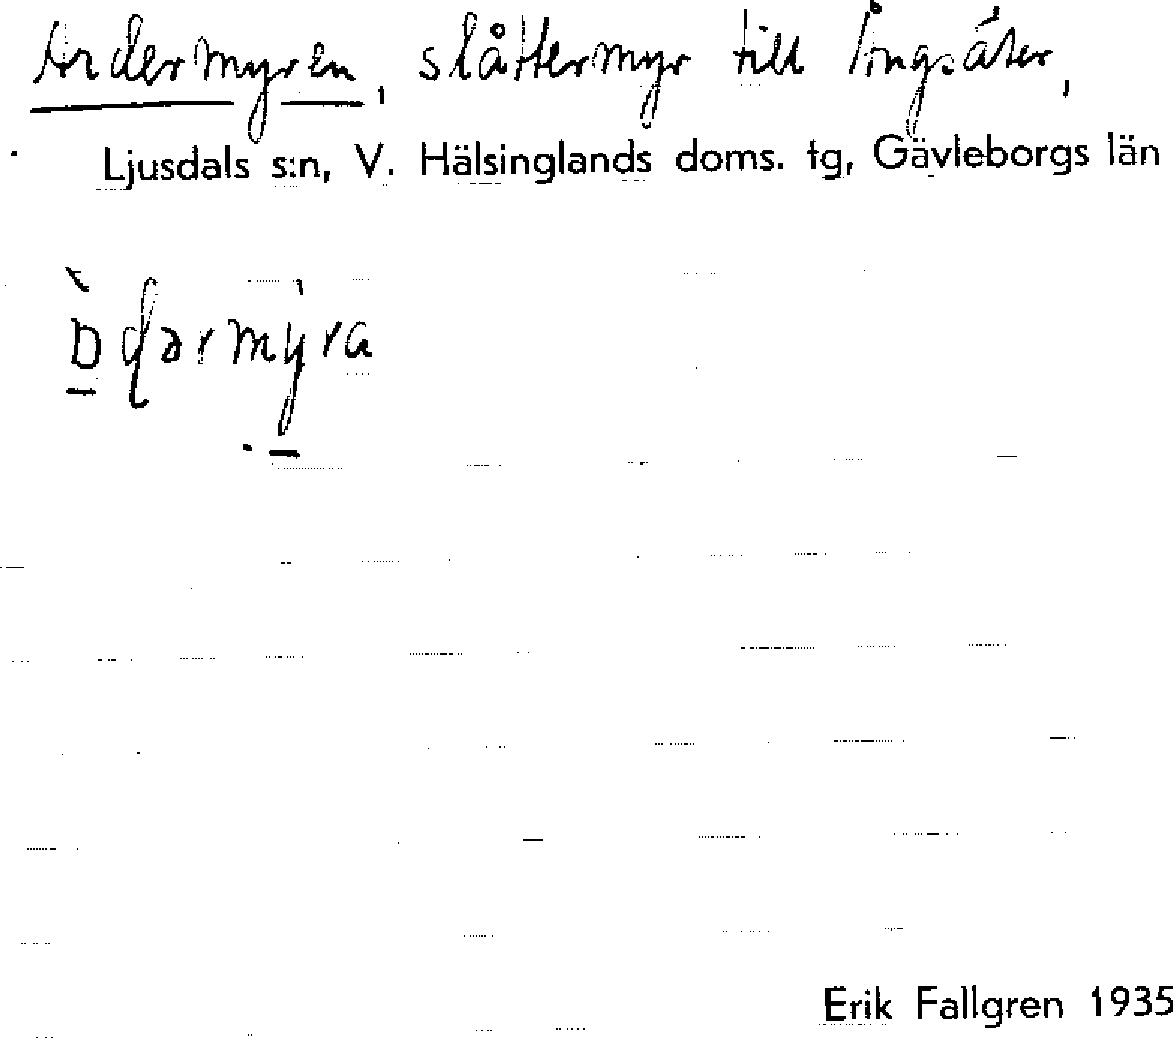 Ardermyren, slåttermyr till Ängsäter,
Ljusdals s:n, V. Hälsinglands doms. tg, Gävleborgs län
Erik Fallgren 1935